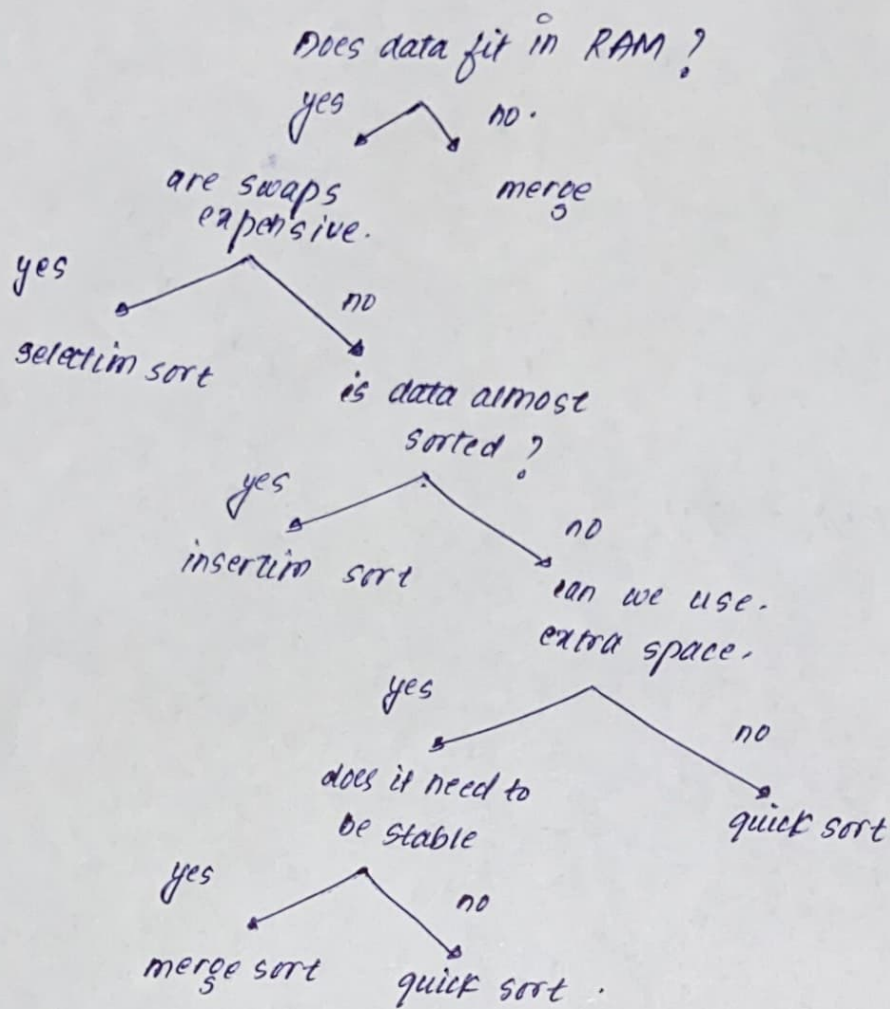 Does data fit in RAM ?
yes no.
are swaps merge
expensive.
yes
no
selection sort
is data almost
sorted ?
yes
no
insertion sort
can we use.
extra space.
yes
no
does it need to
be stable
quick sort
yes
no
merge sort
quick sort .